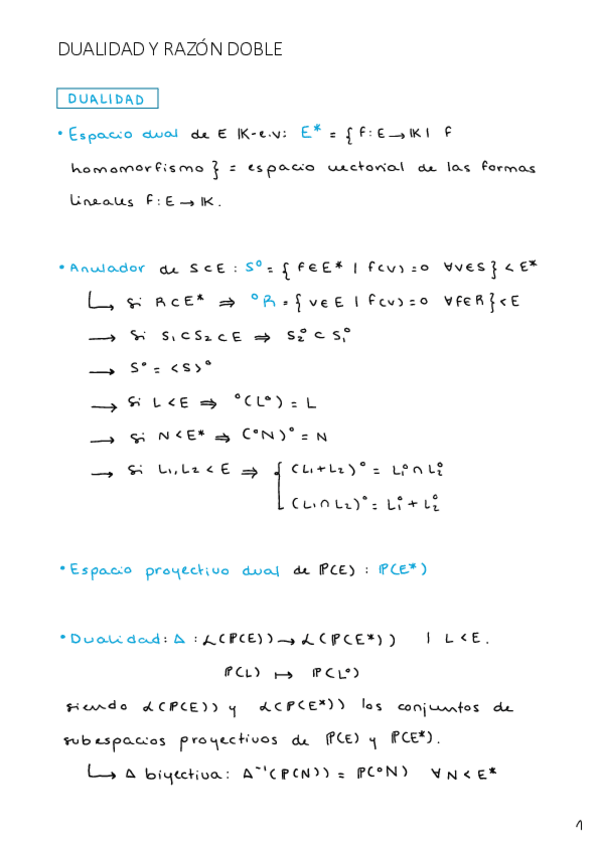 DUALIDAD Y RAZÓN DOBLE
DUALIDAD
• Espacio dual de E 𝕂-e.v: E* = { f: E → 𝕂 | f
homomorfismo } = espacio vectorial de las formas
lineales f: E → 𝕂.
• Anulador de S ⊂ E : S° = { f ∈ E* | f(v) = 0 ∀v ∈ S } < E*
↳ Si R ⊂ E* ⇒ °R = { v ∈ E | f(v) = 0 ∀f ∈ R } < E
→ Si S₁ ⊂ S₂ ⊂ E ⇒ S₂° ⊂ S₁°
→ S° = <S>°
→ Si L < E ⇒ °(L°) = L
→ Si N < E* ⇒ (°N)° = N
→ Si L₁, L₂ < E ⇒ { (L₁ + L₂)° = L₁° ∩ L₂°
(L₁ ∩ L₂)° = L₁° + L₂°
• Espacio proyectivo dual de ℙ(E) : ℙ(E*)
• Dualidad: Δ : ℒ(ℙ(E)) → ℒ(ℙ(E*)) | L < E.
ℙ(L) ↦ ℙ(L°)
siendo ℒ(ℙ(E)) y ℒ(ℙ(E*)) los conjuntos de
subespacios proyectivos de ℙ(E) y ℙ(E*).
↳ Δ biyectiva: Δ⁻¹(ℙ(N)) = ℙ(°N) ∀N < E*
1